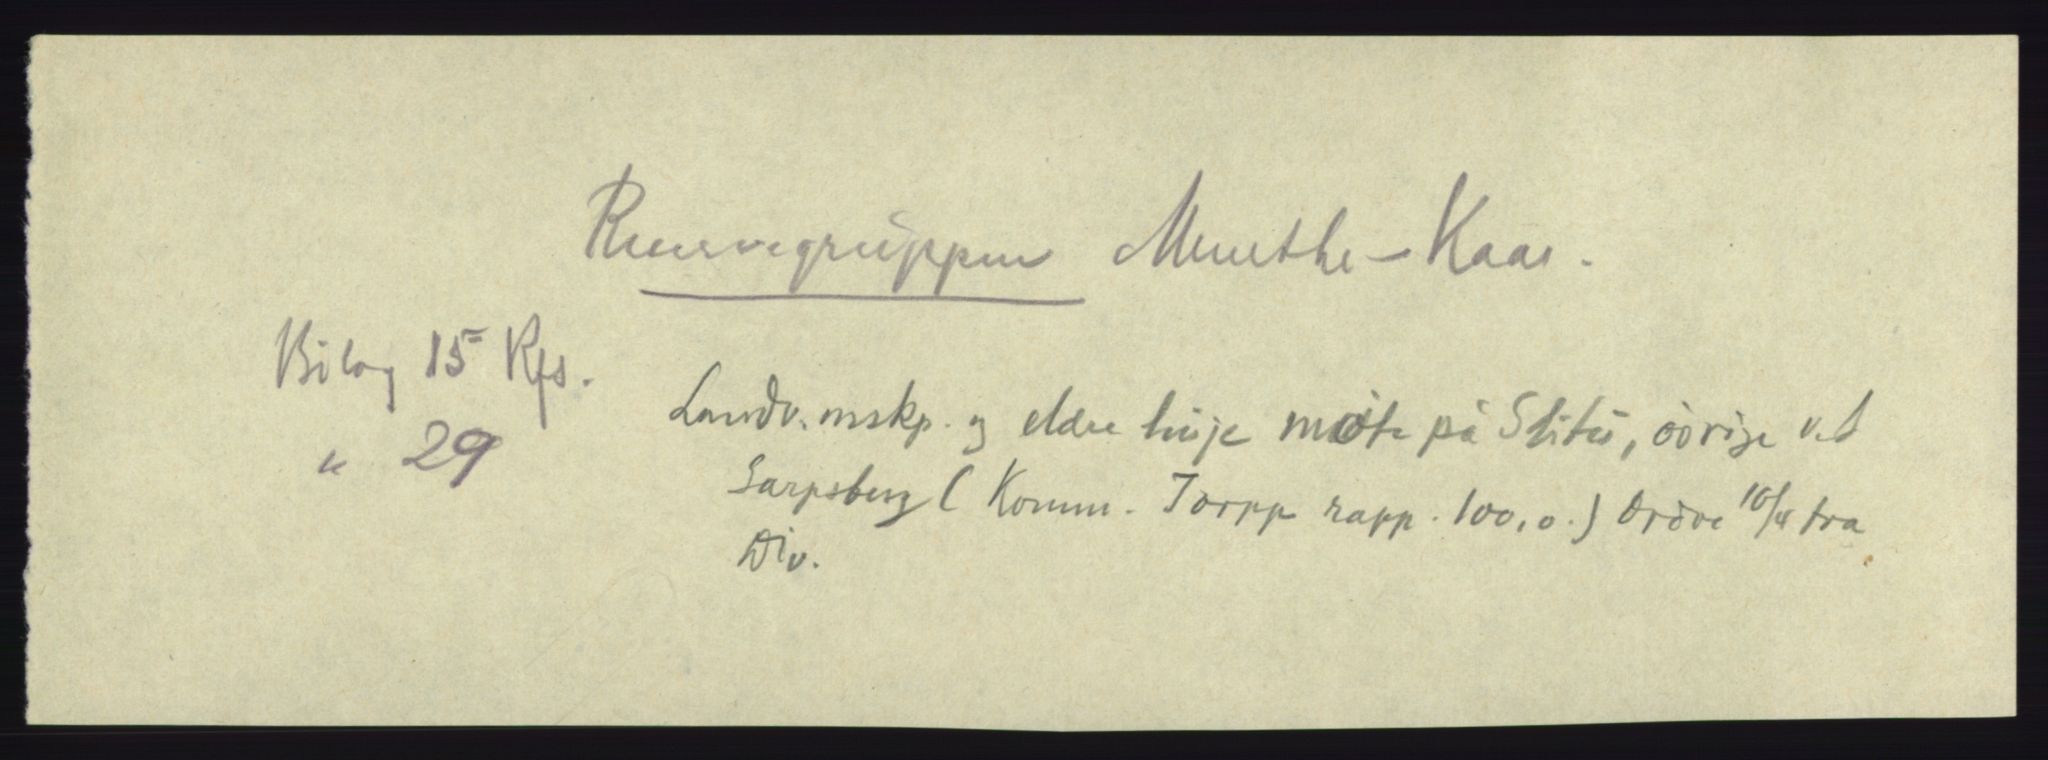 Reservegruppen Munthe-Kaas.
Bilag 15 Rfs.
" 29
Landv. mskp. og eldre linje møte på Slitu, øvrige ved
Sarpsborg (Komm. Torpp rapp. 100,0.) Ordre 10/4 fra
Div.